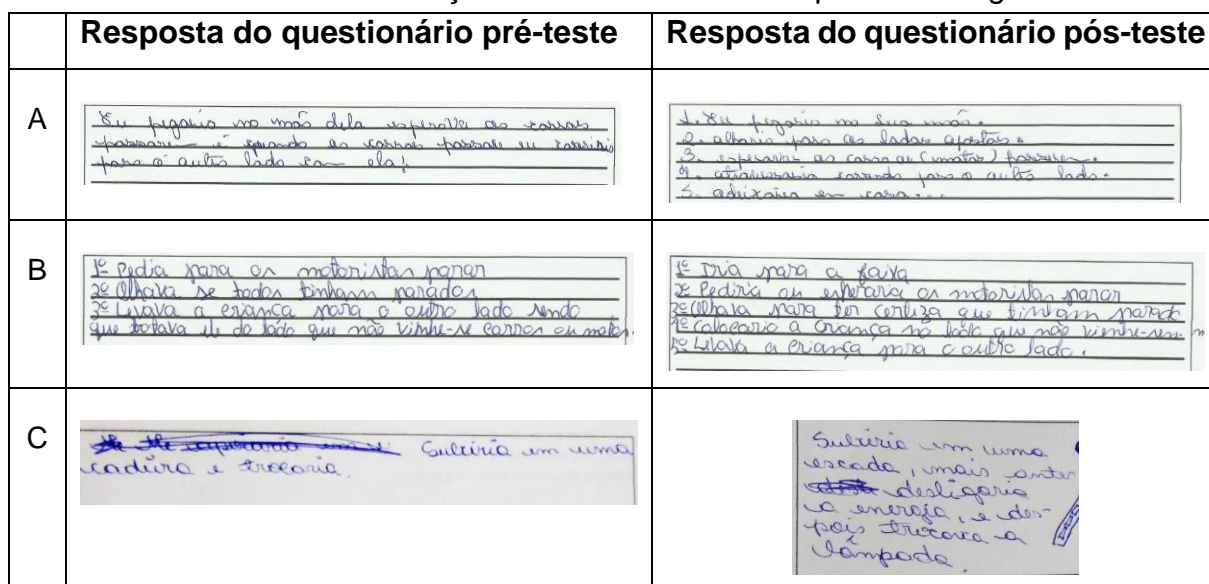 Resposta do questionário pré-teste
Resposta do questionário pós-teste
A
Eu pegaria na mão dela esperava os carros
passare e quando os carros passase eu
para o outro lado com ela!
1. Eu pegaria na sua mão.
2. olharia para os lados opostos.
3. esperarias os carro ou (motos) passarem.
4. atravessaria correndo para o outro lado.
5. adeixaria em casa...
B
1º Pedia para os motoristas parar
2º Olhava se todos tinham parados
3º Levava a criança para o outro lado sendo
que botava ele do lado que não vinhe-se carros ou motos.
1º Iria para a faixa
2º Pediria ou esperaria os motoristas parar
3º Olhava para ter certeza que tinham parado
4º Colocaria a criança no lado que não vienhe-sem
5º Levava a criança para o outro lado.
C
Subiria em uma
cadeira e trocaria.
Subiria em uma
escada, mais antes
desligaria
a energia, e des-
pois trocava a
lâmpada.